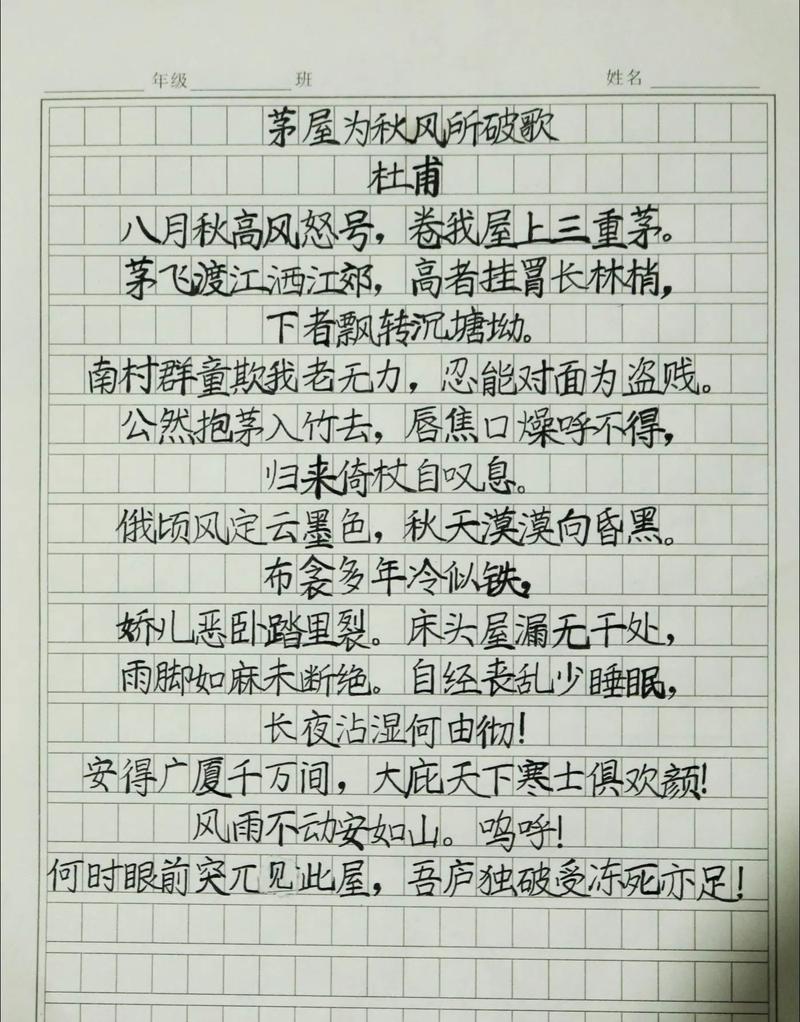 年级 班 姓名
茅屋为秋风所破歌
杜甫
八月秋高风怒号，卷我屋上三重茅。
茅飞渡江洒江郊，高者挂罥长林梢，
下者飘转沉塘坳。
南村群童欺我老无力，忍能对面为盗贱。
公然抱茅入竹去，唇焦口燥呼不得，
归来倚杖自叹息。
俄顷风定云墨色，秋天漠漠向昏黑。
布衾多年冷似铁，
娇儿恶卧踏里裂。床头屋漏无干处，
雨脚如麻未断绝。自经丧乱少睡眠，
长夜沾湿何由彻！
安得广厦千万间，大庇天下寒士俱欢颜！
风雨不动安如山。呜呼！
何时眼前突兀见此屋，吾庐独破受冻死亦足！